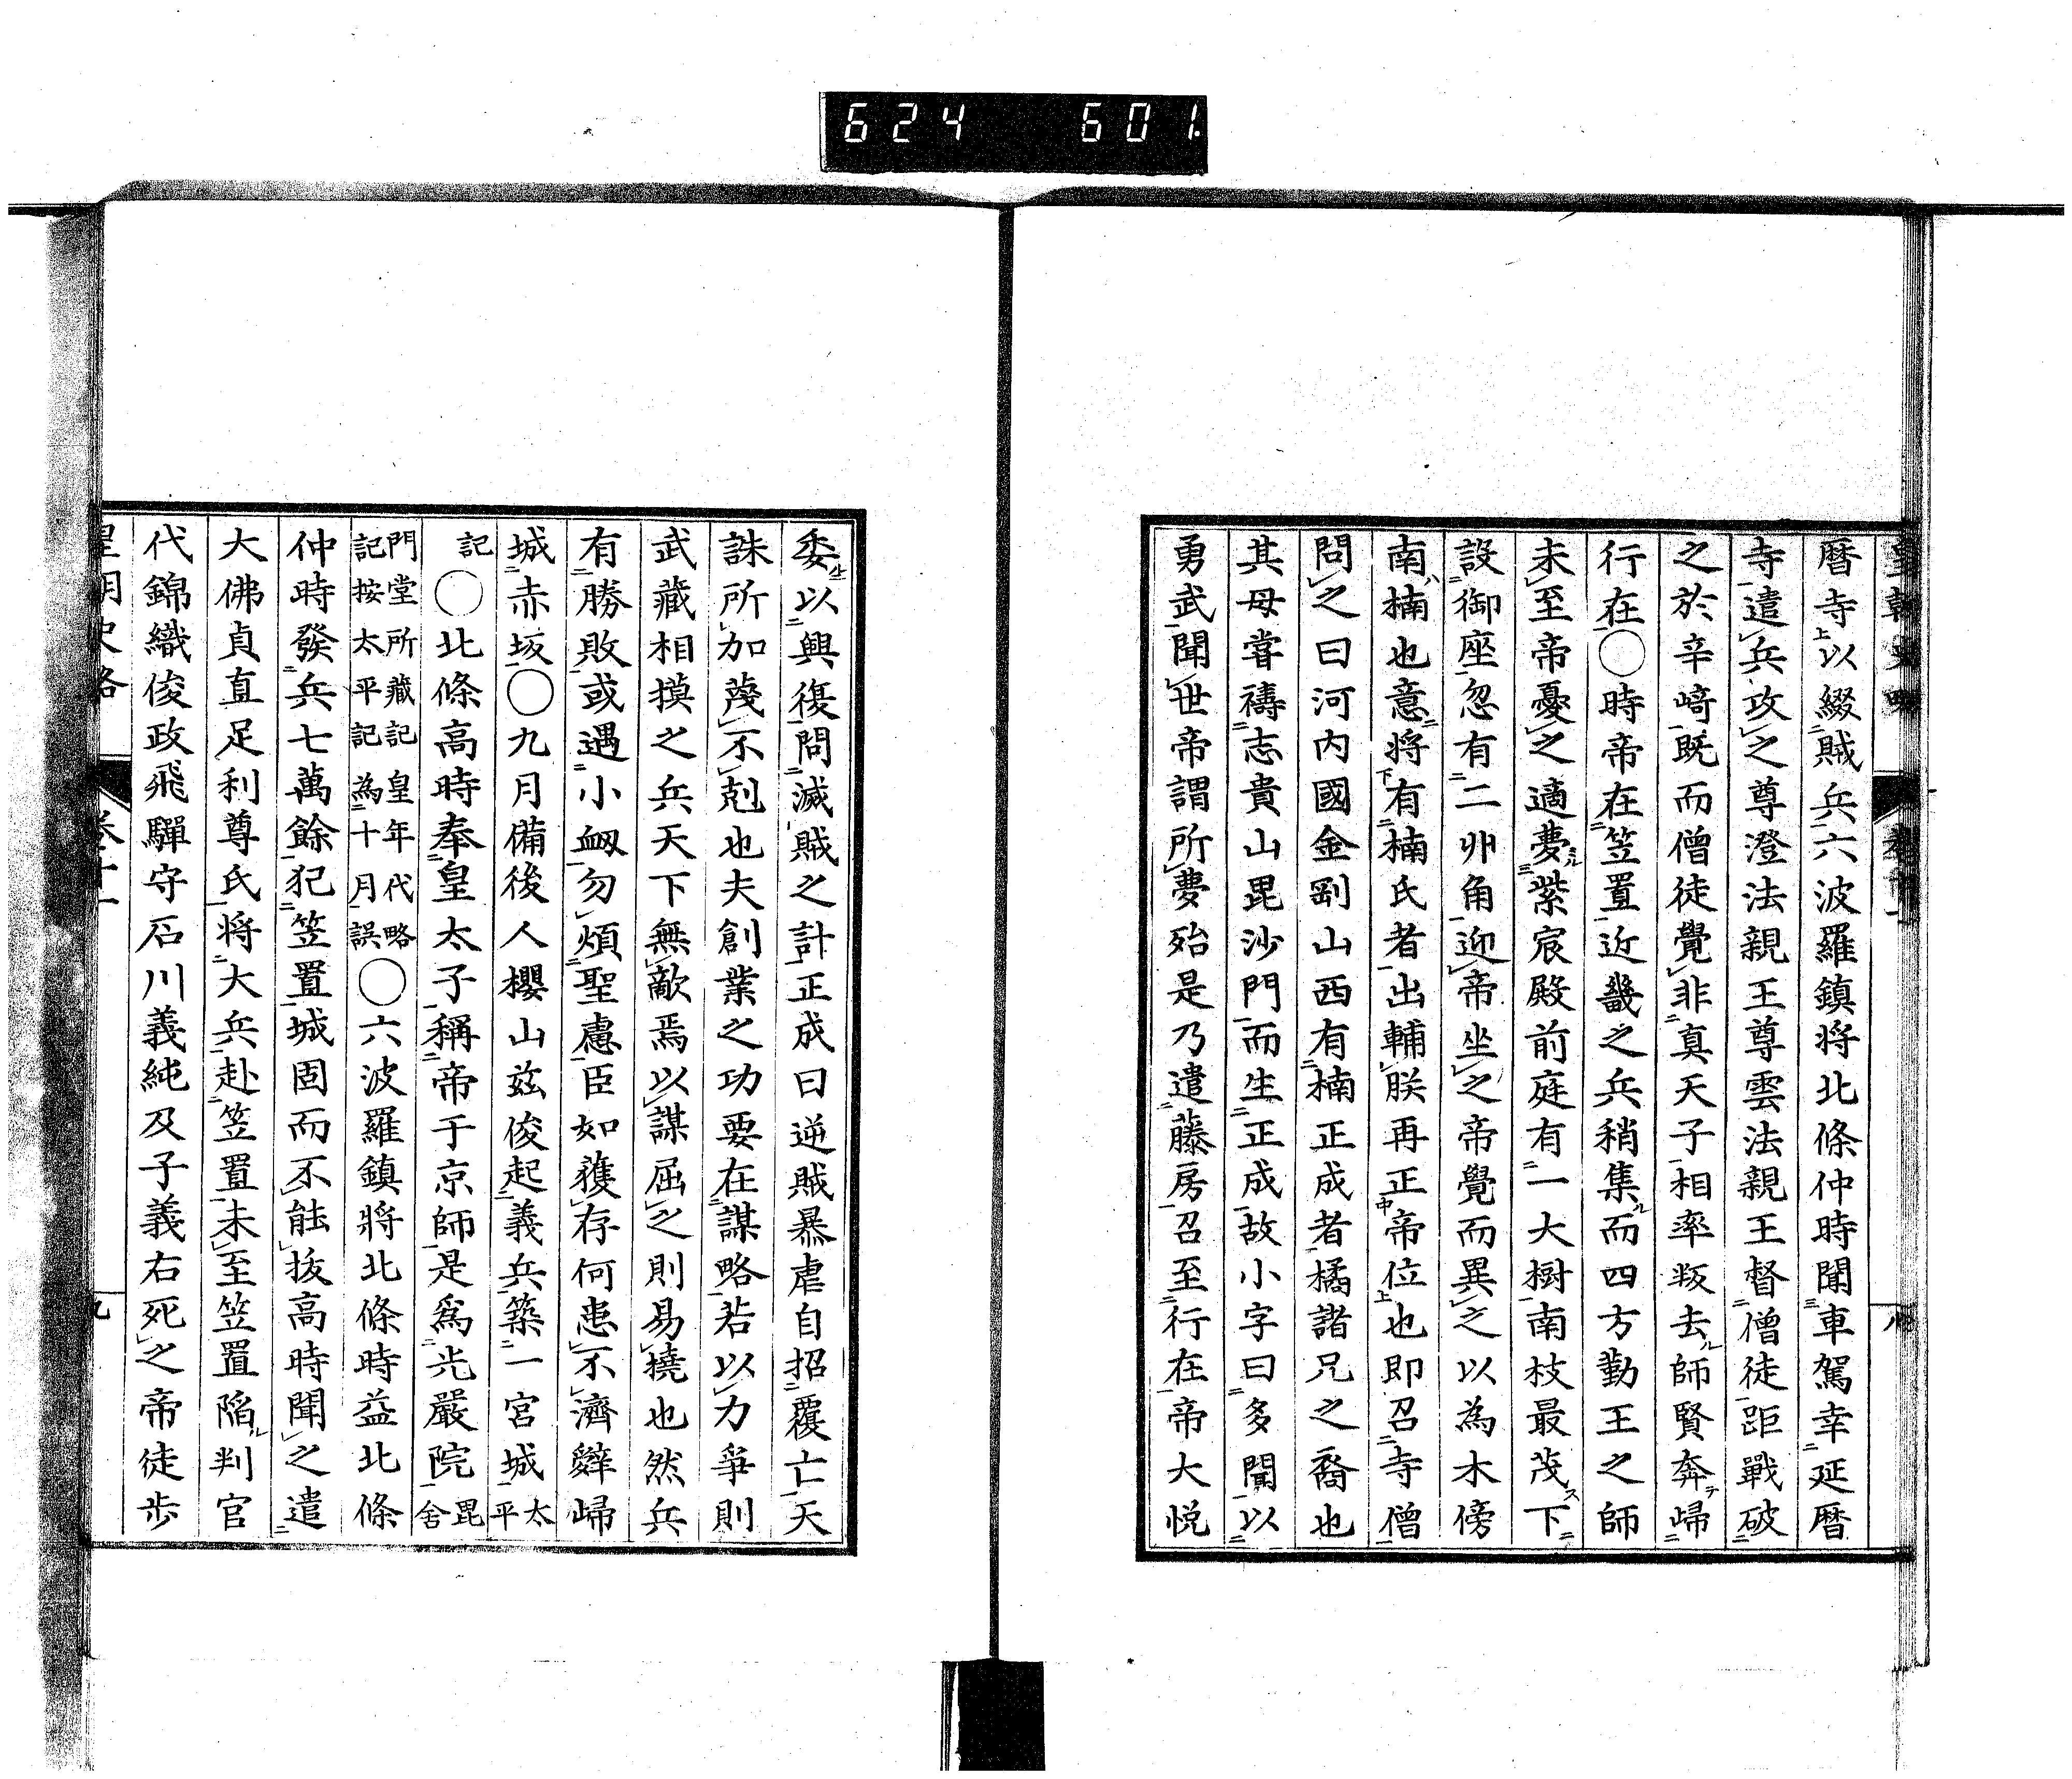 624 601
暦寺以綴賊兵六波羅鎮将北條仲時聞車駕幸延暦
寺遣兵攻之尊澄法親王尊雲法親王督僧徒距戰破
之於辛﨑既而僧徒覺非真天子相率叛去師賢奔歸
行在○時帝在笠置近畿之兵稍集而四方勤王之師
未至帝憂之適夢紫宸殿前庭有一大樹南枝最茂下
設御座忽有二丱角迎帝坐之帝覺而異之以為木傍
南楠也意将有楠氏者出輔朕再正帝位也即召寺僧
問之曰河内國金剛山西有楠正成者橘諸兄之裔也
其母嘗禱志貴山毘沙門而生正成故小字曰多聞以
勇武聞世帝謂所夢殆是乃遣藤房召至行在帝大悦
委以興復問滅賊之計正成曰逆賊暴虐自招覆亡天
誅所加蔑不剋也夫創業之功要在謀略若以力爭則
武藏相摸之兵天下無敵焉以謀屈之則易撓也然兵
有勝敗或遇小衂勿煩聖慮臣如獲存何患不濟辭歸
城赤坂○九月備後人櫻山玆俊起義兵築一宮城太平
記○北條高時奉皇太子稱帝于京師是爲光嚴院毘舍
門堂所藏記皇年代略記按太平記為十月誤○六波羅鎮將北條時益北條
仲時發兵七萬餘犯笠置城固而不能抜高時聞之遣
大佛貞直足利尊氏将大兵赴笠置未至笠置陷判官
代錦織俊政飛驒守石川義純及子義右死之帝徒歩